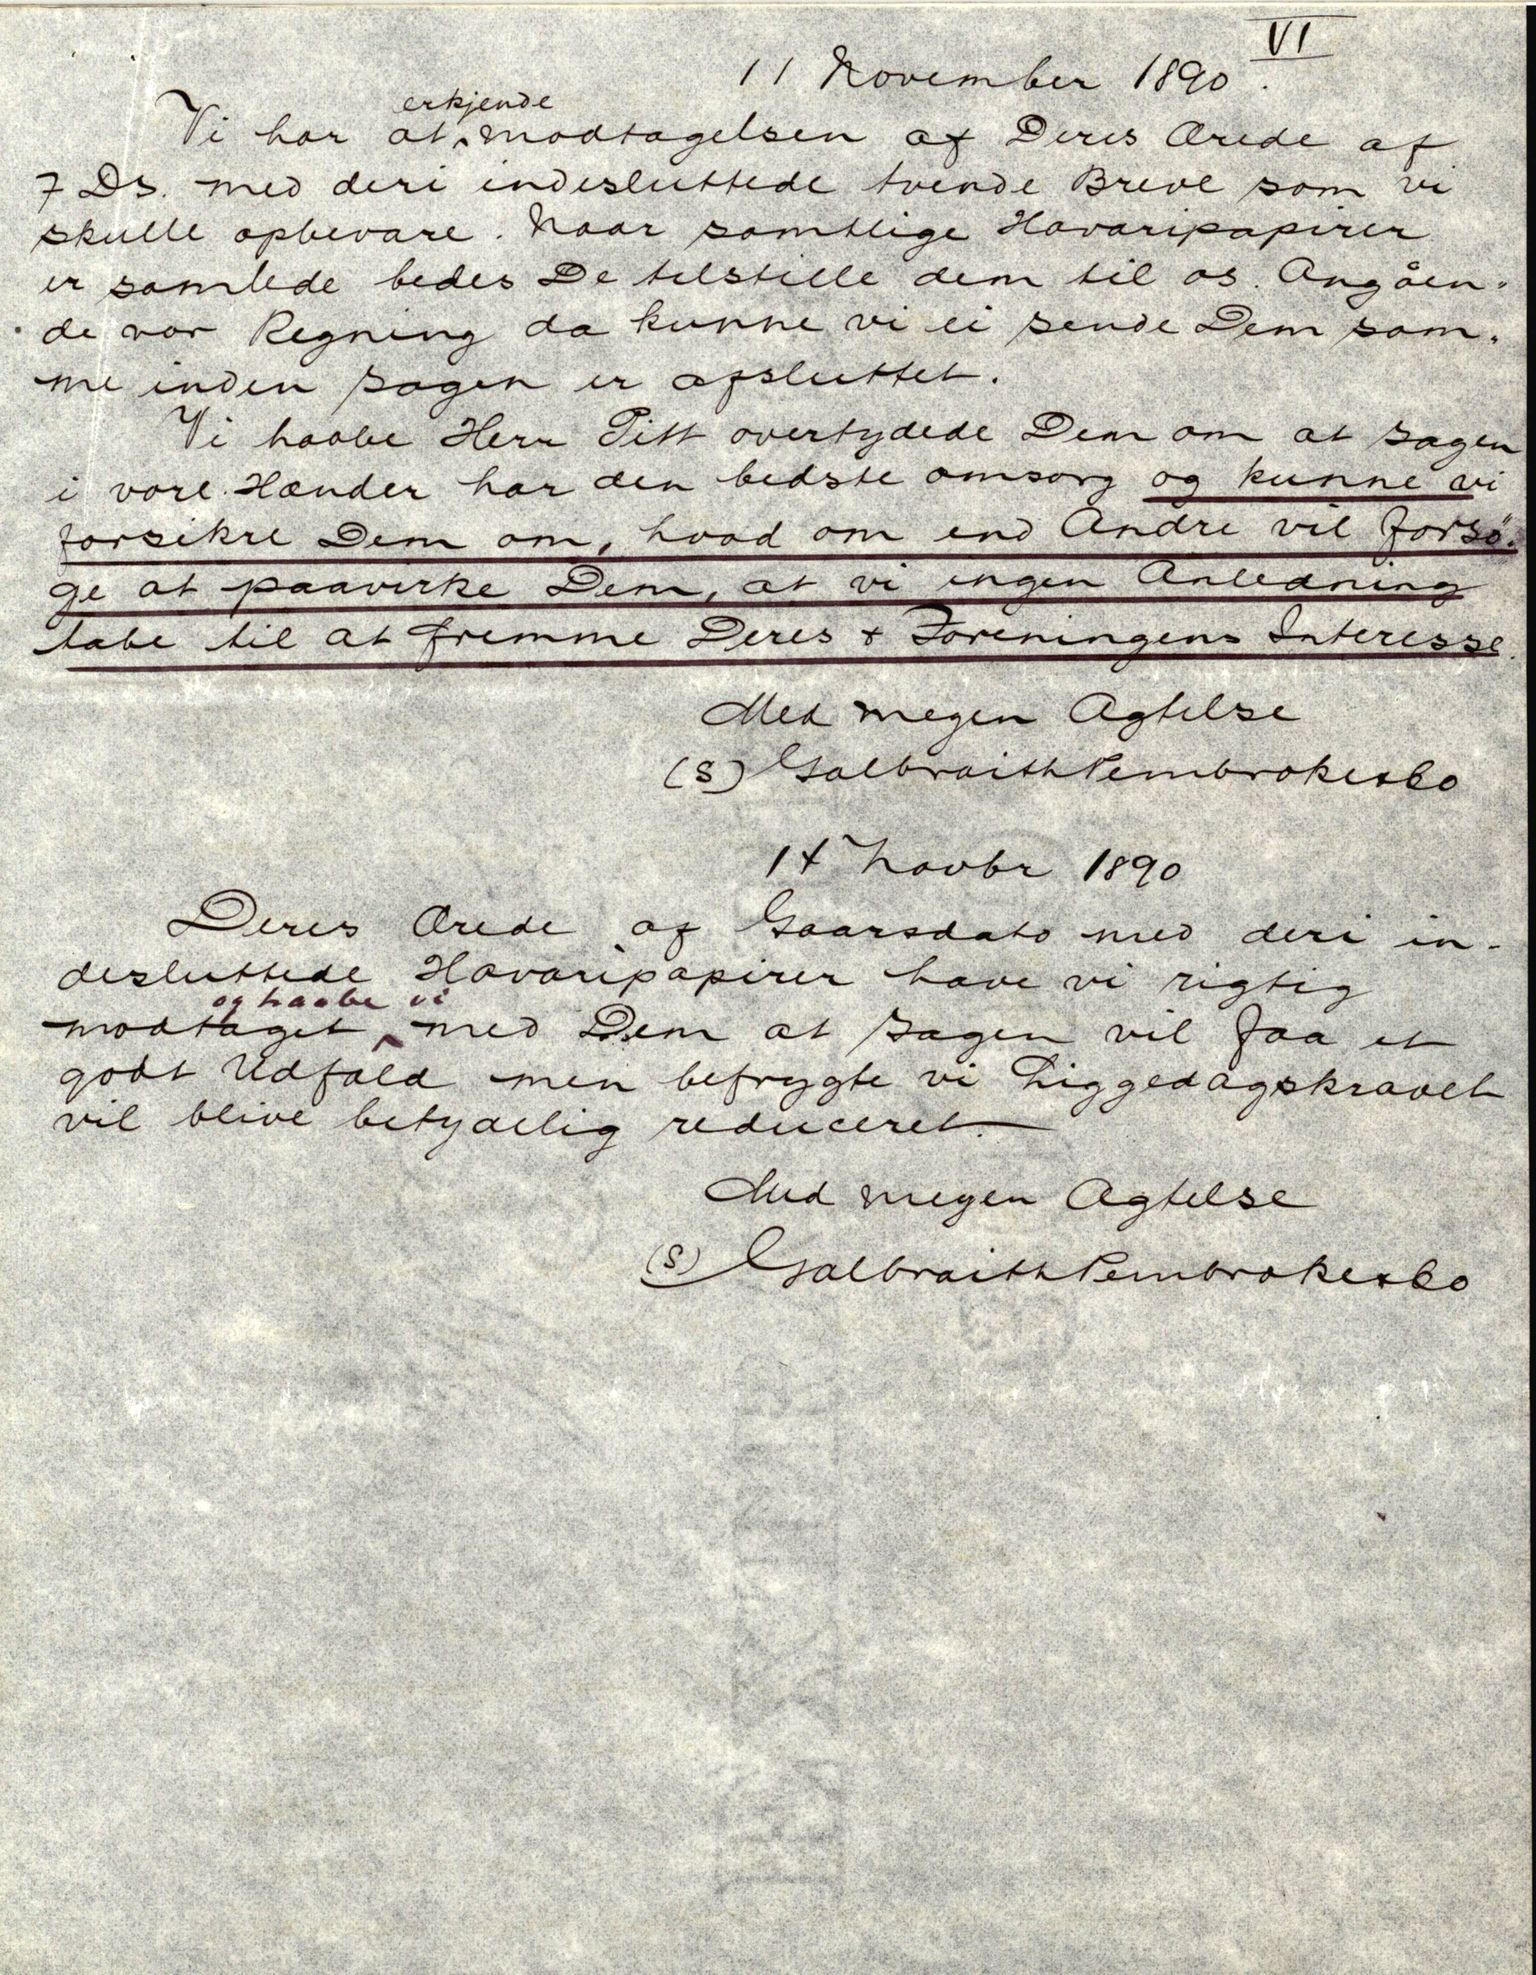 VI
11 November 1890.
erkjende
Vi har at modtagelsen af Deres Ærede af
7 Ds. med deri indesluttede tvende Breve som vi
skulle opbevare. Naar samtlige Havaripapirer
er samlede bedes De tilstille dem til os. Angåen-
de vor Regning da kunne vi ei sende Dem sam-
me inden sagen er afsluttet.
Vi haabe Herr Pitt overtydede Dem om at sagen
i vore Hænder har den bedste omsorg og kunne vi
forsikre Dem om, hvad om end Andre vil forsö-
ge at paavirke Dem, at vi ingen Anledning
tabe til at fremme Deres & Foreningens Interesse.
Med megen Agtelse
(S) Galbraith Pembroke & Co
14 Novbr 1890
Deres Ærede af Gaarsdato med deri in-
desluttede Havaripapirer have vi rigtig
og haabe vi
modtaget med Dem at sagen vil faa et
godt Udfald men befrygte vi Liggedagskravet
vil blive betydelig reduceret.
Med megen Agtelse
(S) Galbraith Pembroke & Co